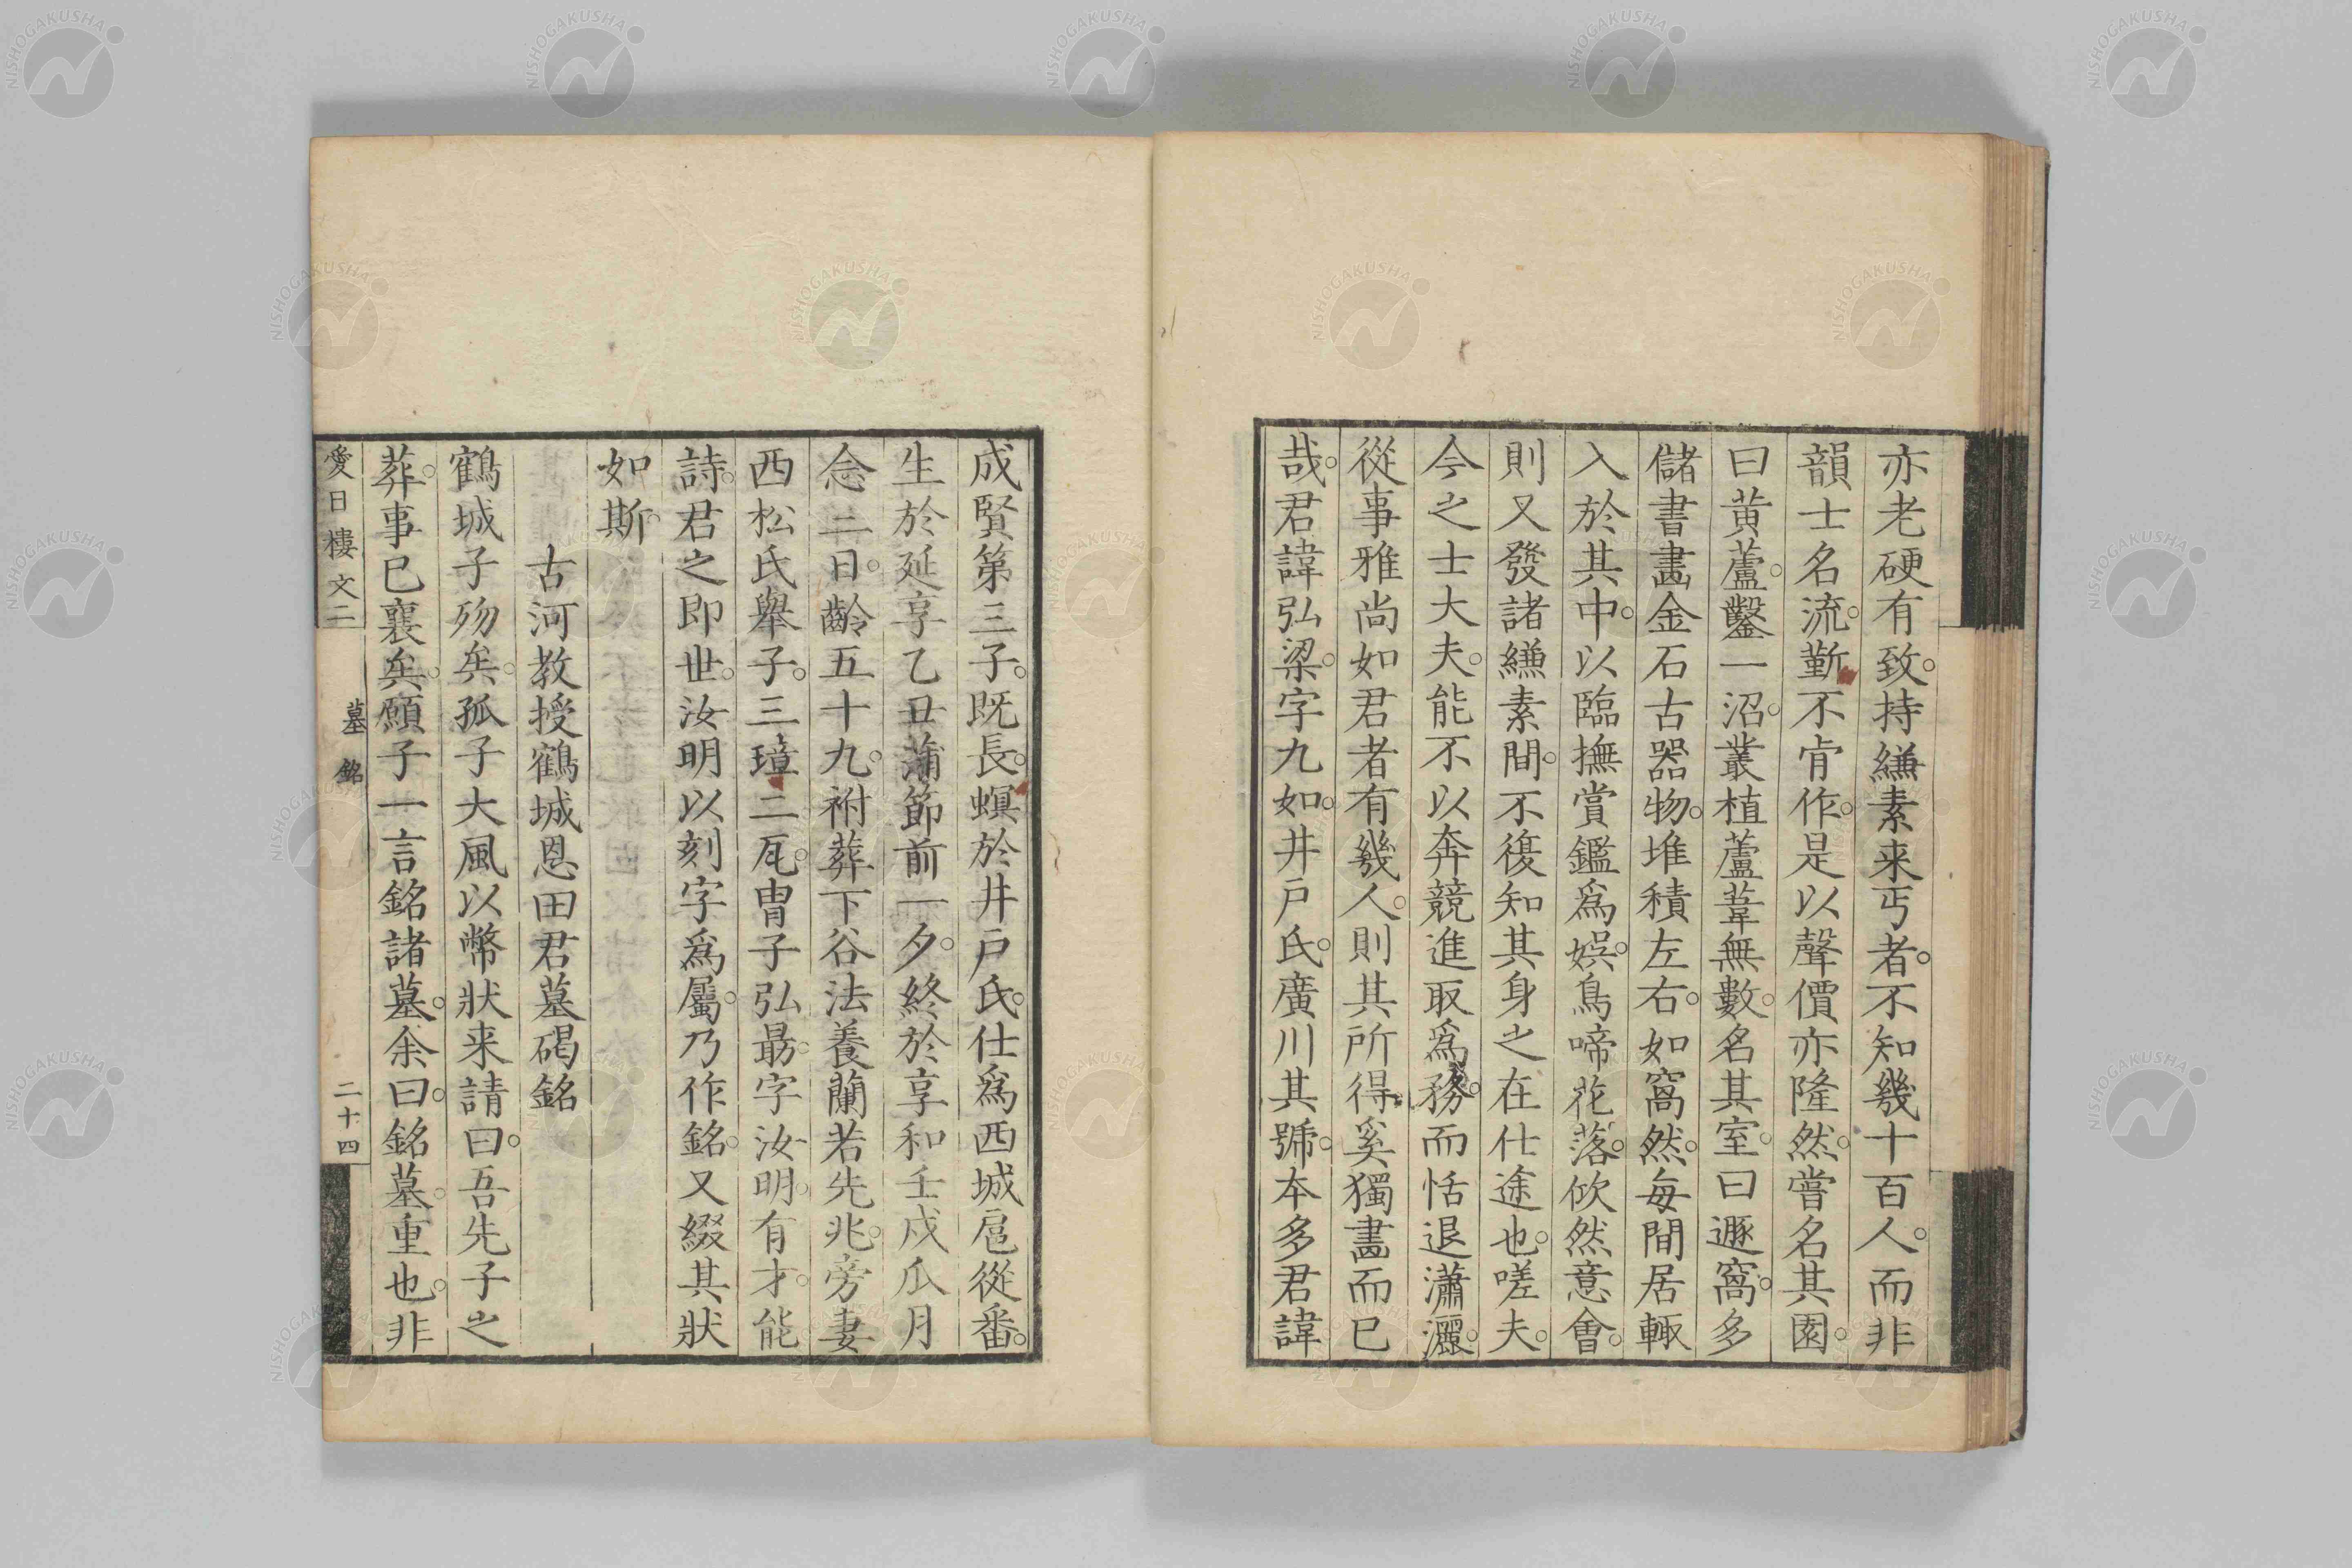 亦老硬有致。持縑素来丐者。不知幾十百人。而非
韻士名流。斳不肯作。是以聲價亦隆然。嘗名其園。
曰黄蘆。鑿一沼。叢植蘆葦無數。名其室。曰遯窩。多
儲書畵金石古器物。堆積左右。如窩然。每間居輙
入於其中。以臨撫賞鑑爲娯。鳥啼花落。欣然意會。
則又發諸縑素間。不復知其身之在仕途也。嗟夫。
今之士大夫。能不以奔競進取爲務。而恬退瀟灑。
從事雅尚如君者有幾人。則其所得。奚獨畵而已
哉。君諱弘梁。字九如。井戸氏。廣川其號。本多君諱
成賢第三子。既長。螟於井戸氏。仕爲西城扈從番。
生於延享乙丑蒲節前一夕。終於享和壬戌瓜月
念二日。齡五十九。祔葬下谷法養蘭若先兆。旁妻
西松氏舉子。三璋二瓦。冑子弘最。字汝明。有才。能
詩。君之即世。汝明以刻字爲屬。乃作銘。又綴其狀
如斯。
古河教授鶴城恩田君墓碣銘
鶴城子歿矣。孤子大風以幣狀来請曰。吾先子之
葬。事已襄矣。願子一言銘諸墓。余曰。銘墓。重也。非
愛日樓文二
墓銘
二十四
NISHOGAKUSHA